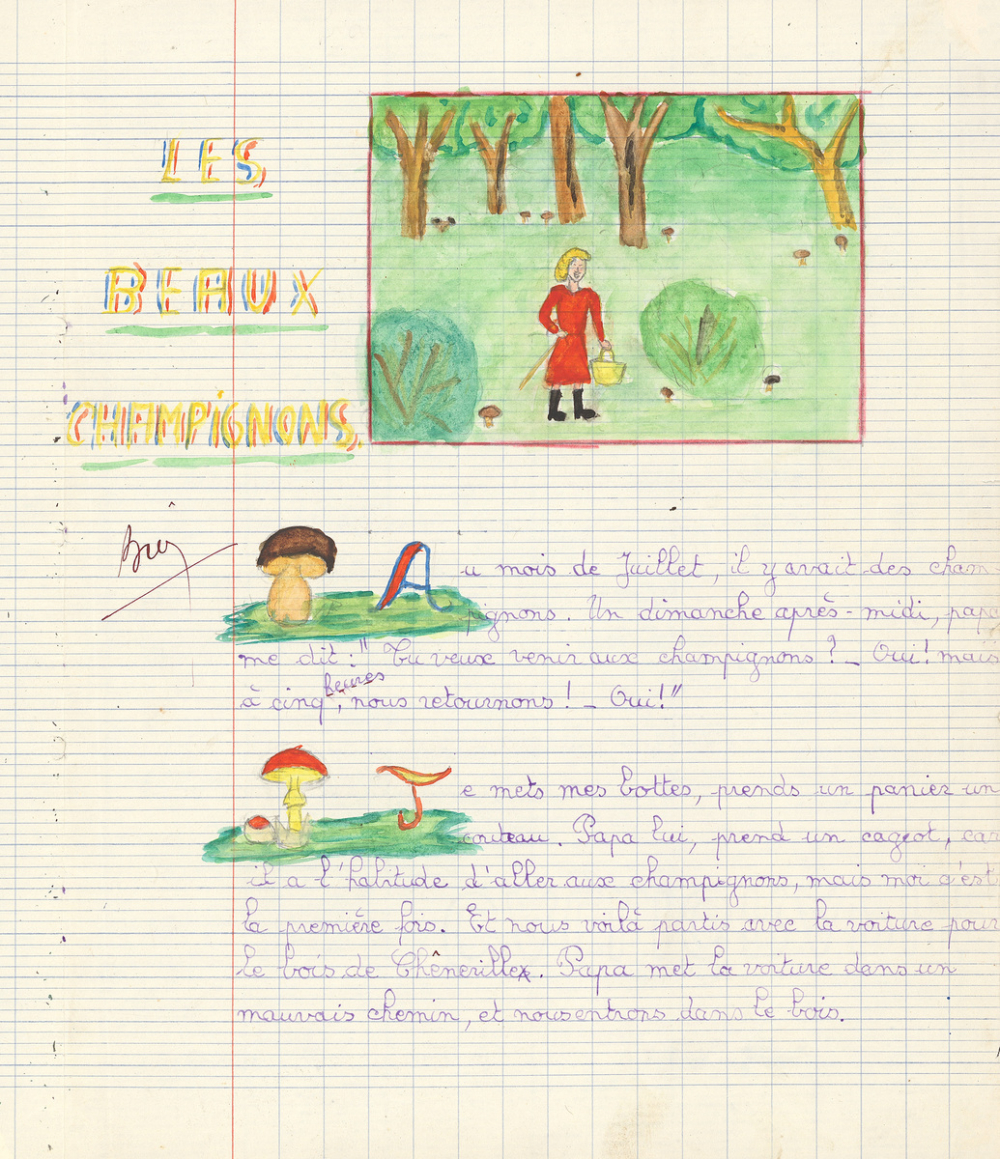 LES
BEAUX
CHAMPiGNONS.
Au mois de Juillet, il y avait des cham-
pignons. Un dimanche après-midi, papa
me dit : " Tu veux venir aux champignons ? _ Oui ! mais
heures
à cinq , nous retournons ! _ Oui ! "
Je mets mes bottes, prends un panier un
couteau. Papa lui, prend un cageot, car
il a l'habitude d'aller aux champignons, mais moi c'est
la première fois. Et nous voilà partis avec la voiture pour
le bois de Chênerilles. Papa met la voiture dans un
mauvais chemin, et nous entrons dans le bois.